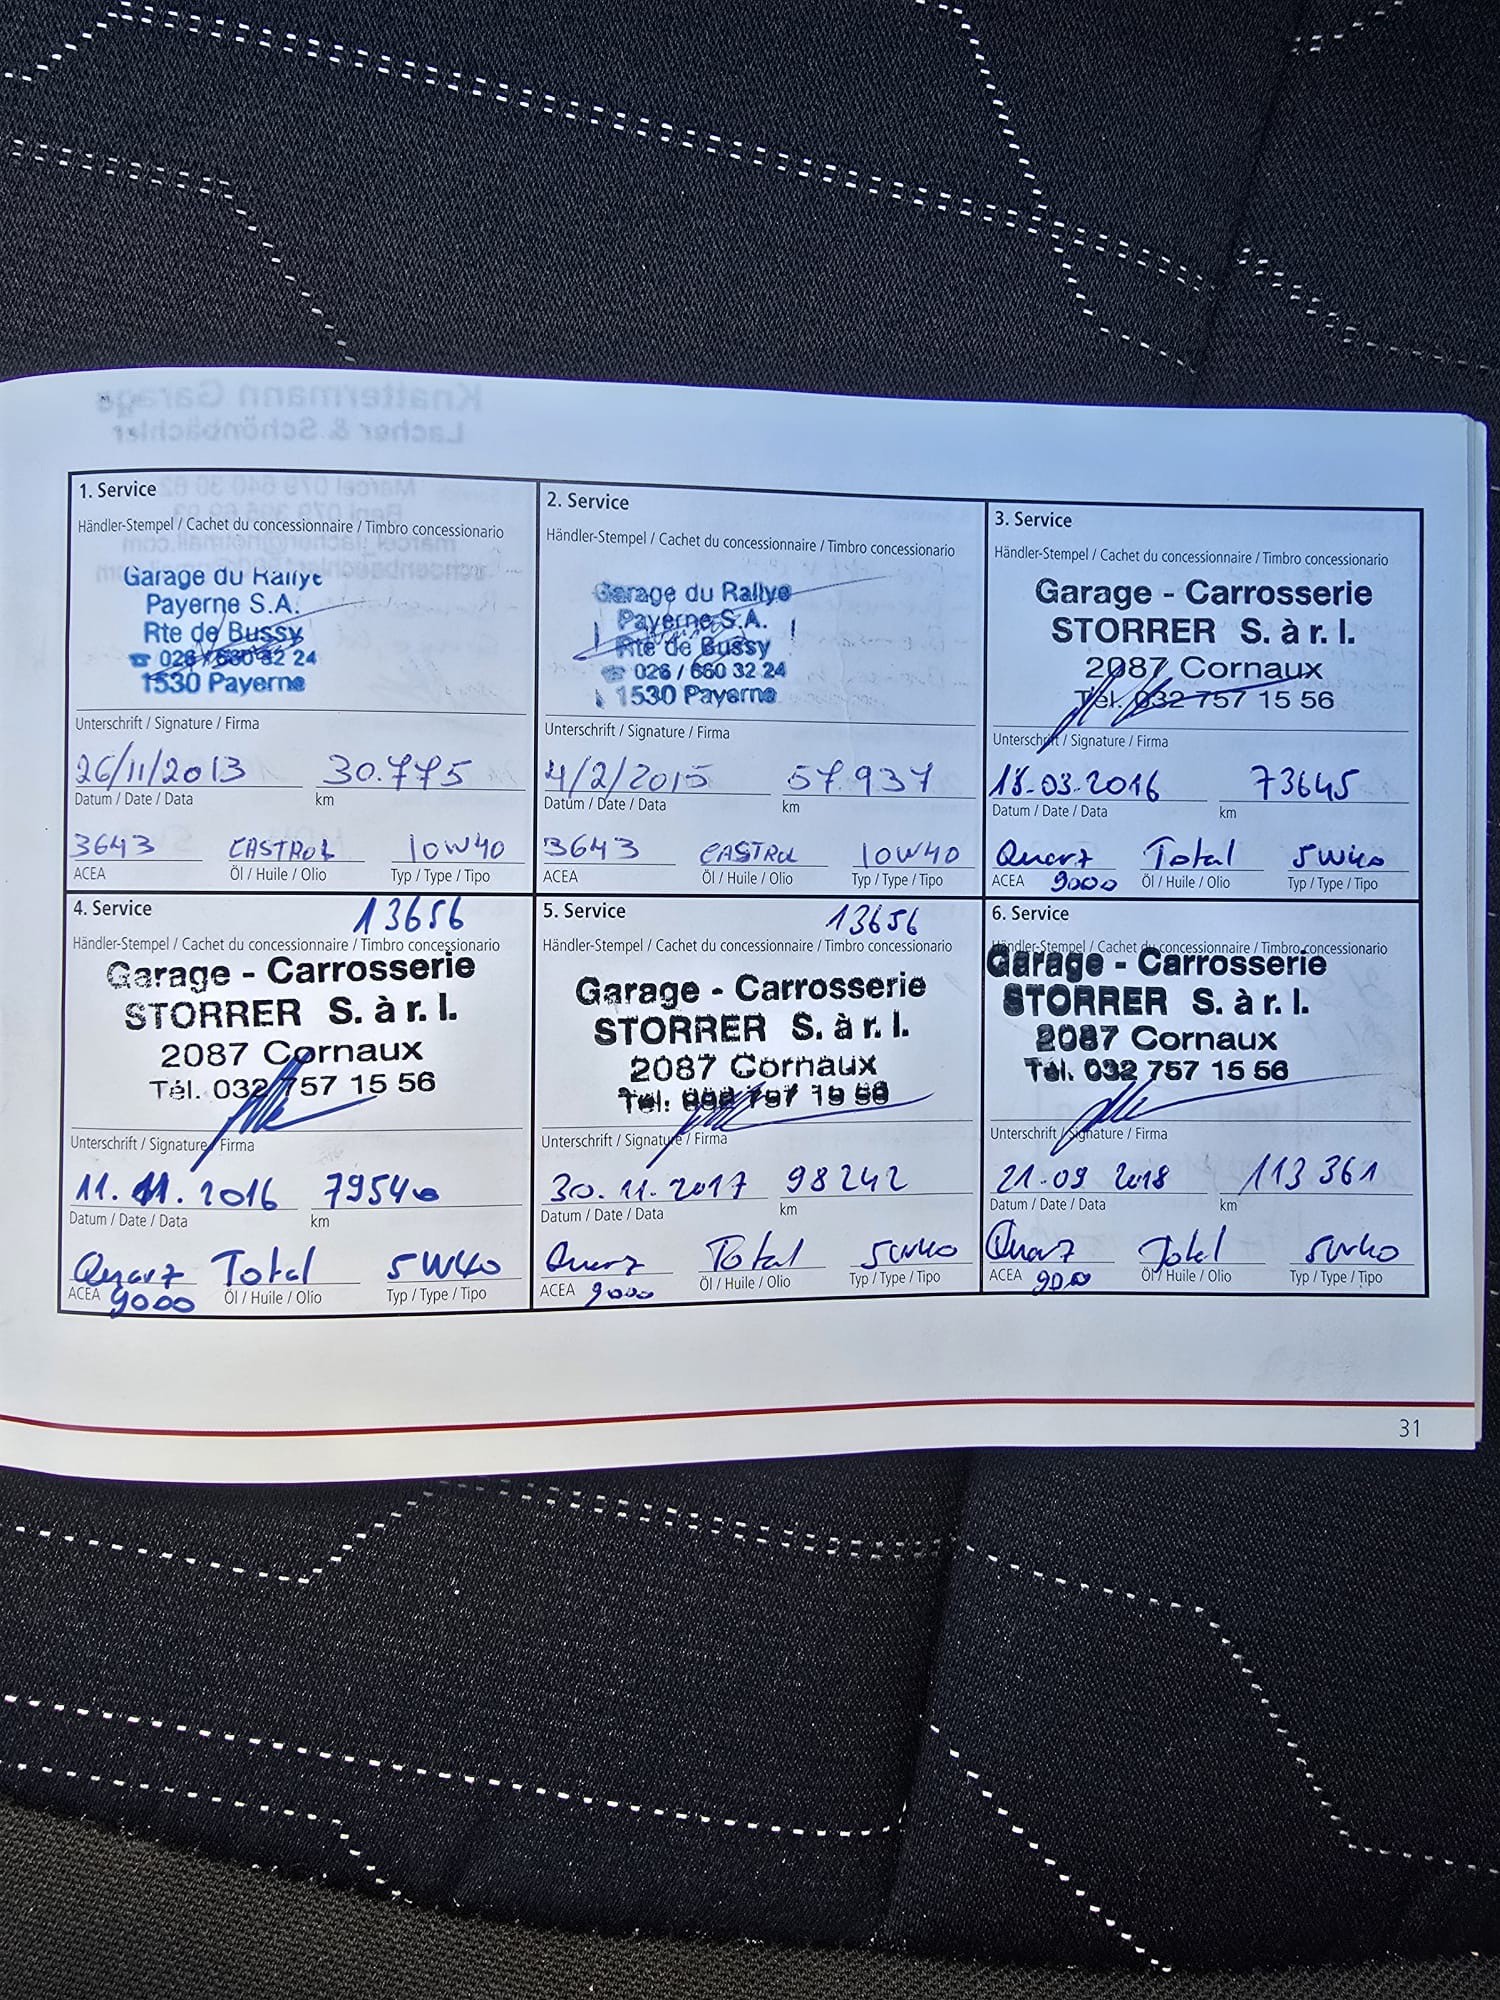 1. Service
Händler-Stempel / Cachet du concessionnaire / Timbro concessionario
Garage du Rallye
Payerne S.A.
Rte de Bussy
☎ 026 / 660 32 24
1530 Payerne
Unterschrift / Signature / Firma
26/11/2013 30.775
Datum / Date / Data km
3643 CASTROL 10W40
ACEA Öl / Huile / Olio Typ / Type / Tipo
2. Service
Händler-Stempel / Cachet du concessionnaire / Timbro concessionario
Garage du Rallye
Payerne S.A.
Rte de Bussy
☎ 026 / 660 32 24
1530 Payerne
Unterschrift / Signature / Firma
4/2/2015 57.937
Datum / Date / Data km
3643 CASTROL 10W40
ACEA Öl / Huile / Olio Typ / Type / Tipo
3. Service
Händler-Stempel / Cachet du concessionnaire / Timbro concessionario
Garage - Carrosserie
STORRER S. à r. l.
2087 Cornaux
Tél. 032 757 15 56
Unterschrift / Signature / Firma
18.03.2016 73645
Datum / Date / Data km
Quarz Total 5W40
ACEA 9000 Öl / Huile / Olio Typ / Type / Tipo
4. Service 13656
Händler-Stempel / Cachet du concessionnaire / Timbro concessionario
Garage - Carrosserie
STORRER S. à r. l.
2087 Cornaux
Tél. 032 757 15 56
Unterschrift / Signature / Firma
11.11.2016 79540
Datum / Date / Data km
Quarz Total 5W40
ACEA 9000 Öl / Huile / Olio Typ / Type / Tipo
5. Service 13656
Händler-Stempel / Cachet du concessionnaire / Timbro concessionario
Garage - Carrosserie
STORRER S. à r. l.
2087 Cornaux
Tél. 032 757 15 56
Unterschrift / Signature / Firma
30.11.2017 98242
Datum / Date / Data km
Quarz Total 5W40
ACEA 9000 Öl / Huile / Olio Typ / Type / Tipo
6. Service
Händler-Stempel / Cachet du concessionnaire / Timbro concessionario
Garage - Carrosserie
STORRER S. à r. l.
2087 Cornaux
Tél. 032 757 15 56
Unterschrift / Signature / Firma
21.09 2018 113361
Datum / Date / Data km
Quarz Total 5W40
ACEA 9000 Öl / Huile / Olio Typ / Type / Tipo
31